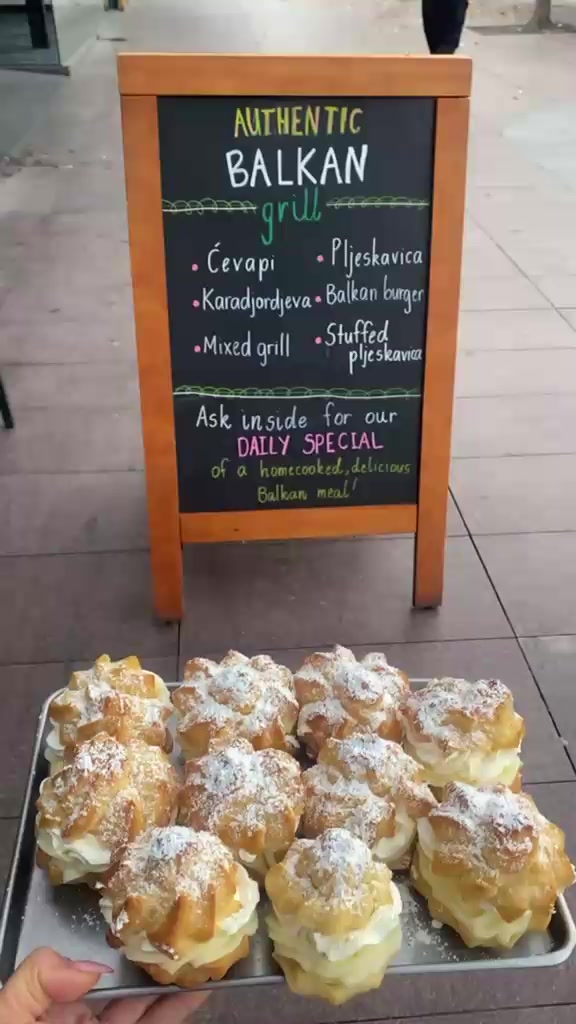 AUTHENTIC
BALKAN
grill
• Ćevapi
• Karadjordjeva
• Mixed grill
• Pljeskavica
• Balkan burger
• Stuffed
pljeskavica
Ask inside for our
DAILY SPECIAL
of a homecooked, delicious
Balkan meal!